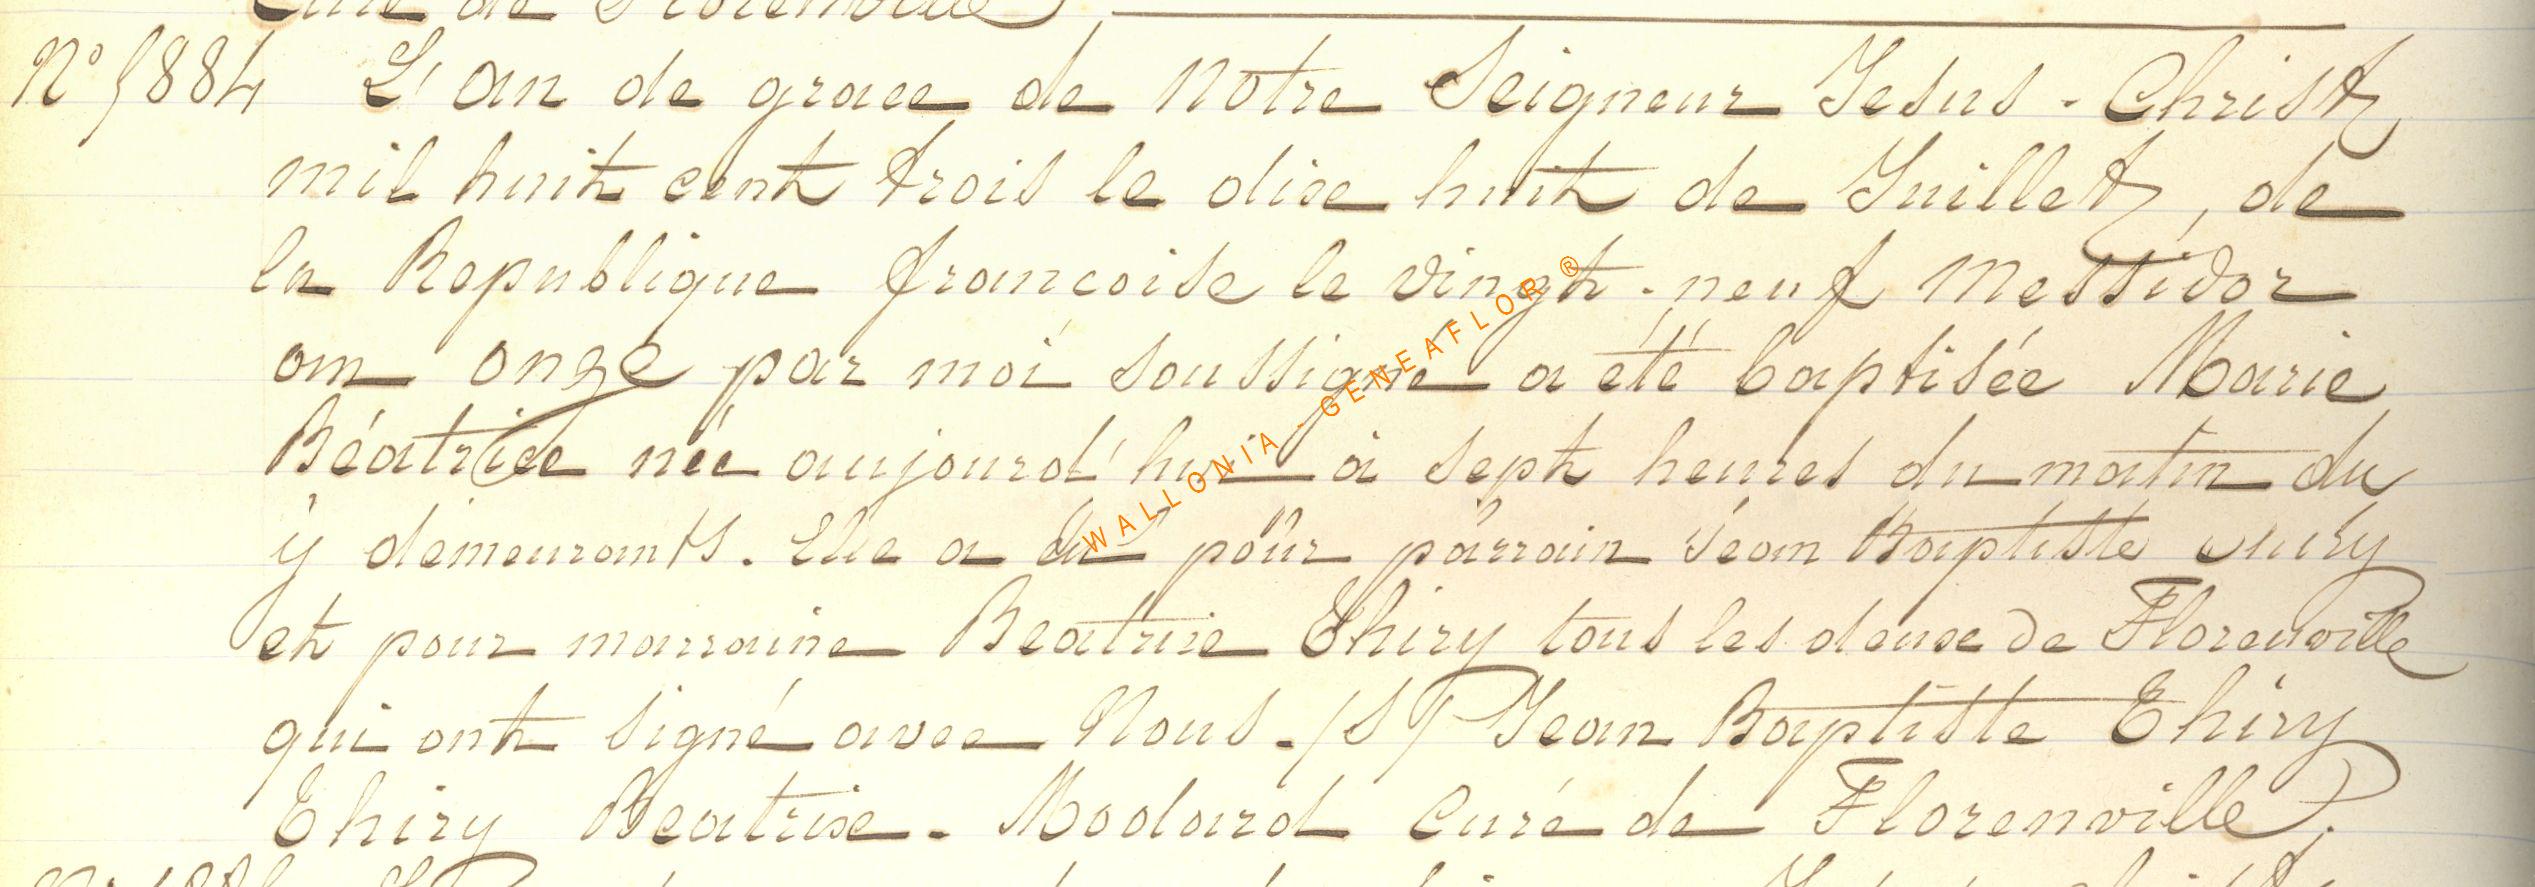 Curé de Florenville
N° 5884 L'an de grace de Notre Seigneur Jesus-Christ
mil huit cent trois le dixe huit de Juillet, de
la Republique francoise le vingt-neuf Messidor
an onze par moi soussigné a été baptisée Marie
Béatrice née aujourd'hui à sept heures du matin du
y demeurants. Elle a eu pour parrain Jean Baptiste
et pour marraine Beatrice Thiry tous les deux de Florenville
qui ont signé avec Nous. (S) Jean Baptiste Thiry
Thiry Beatrise. Modard Curé de Florenville.
WALLONIA - GENEAFLOR ®